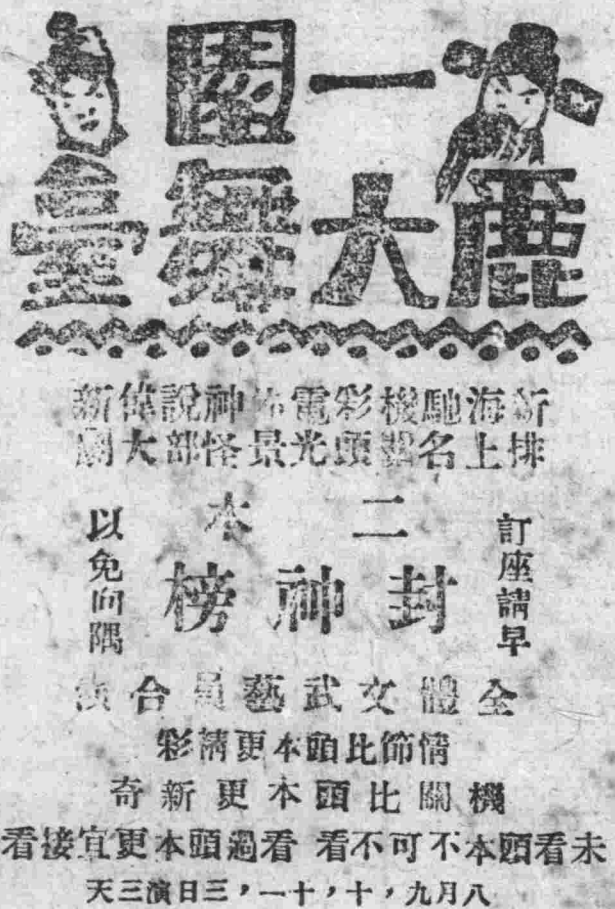 一園
鹿大舞臺
新排海上馳名機彩頭電光佈景神怪說部偉大新劇
訂座請早
二本
封神榜
以免向隅
全體文武藝員合演
情節比頭本更精彩
機關比頭本更新奇
未看頭本不可不看 看過頭本更宜接看
八月九，十，十一，三日演三天